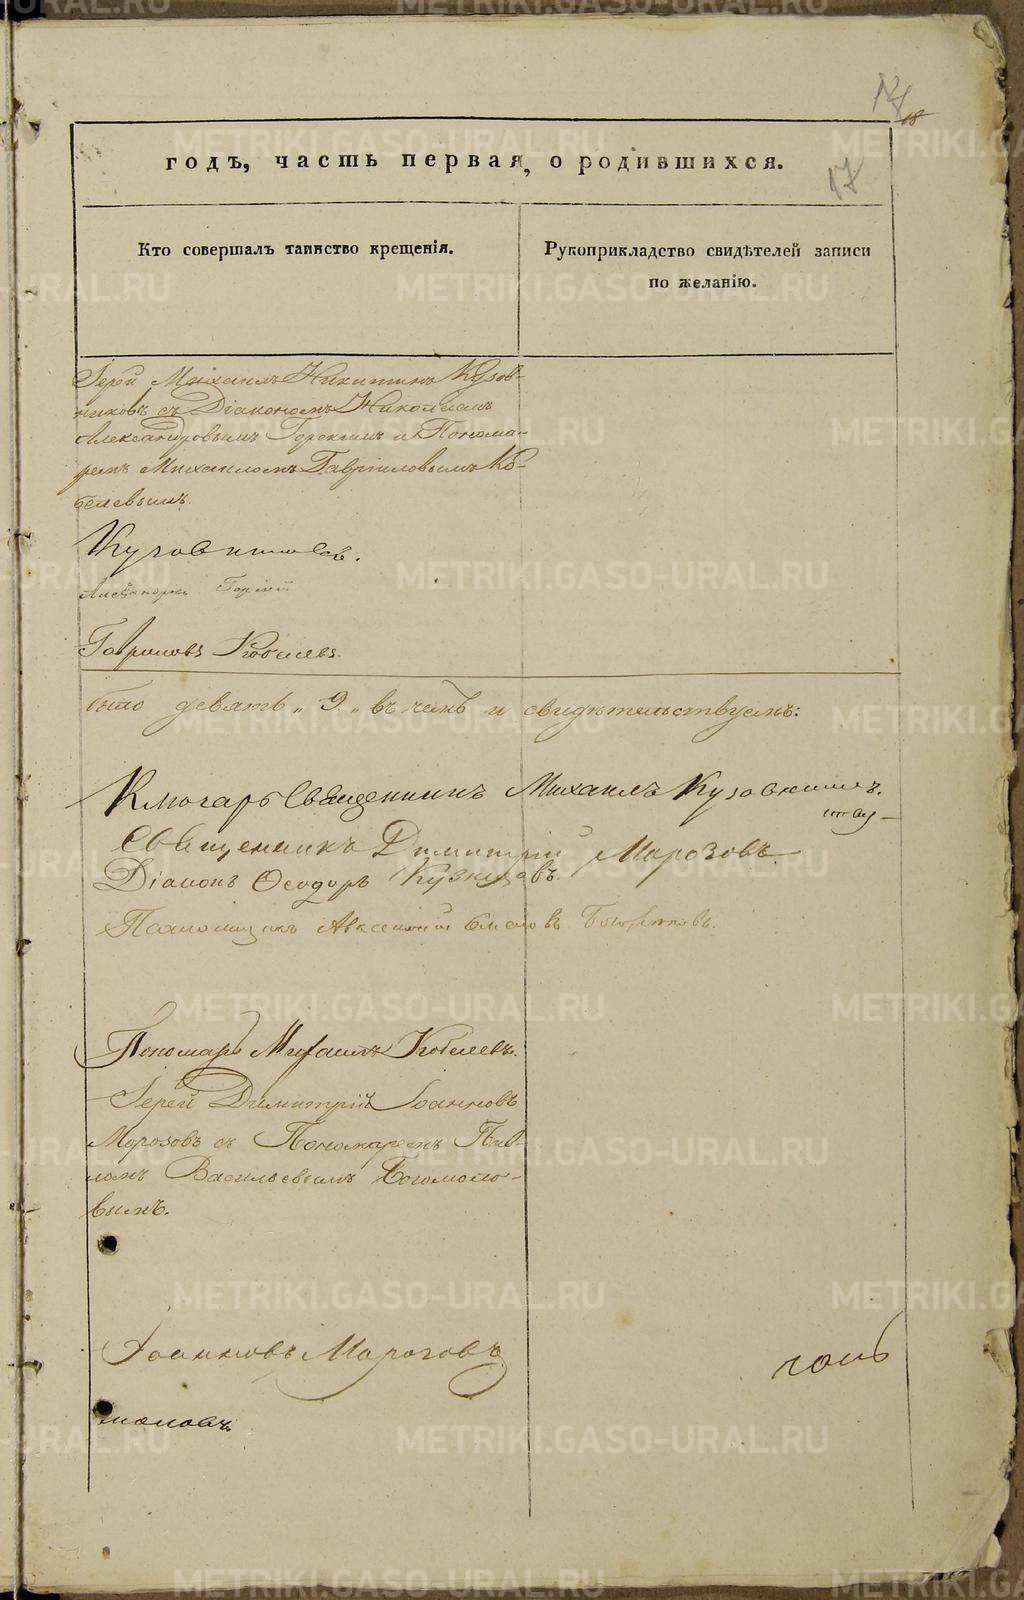 17
18
годъ, часть первая, о родившихся.
17
Кто совершалъ таинство крещенія.
Рукоприкладство свидѣтелей записи
по желанію.
Іерей Михаилъ Никитинъ Кузов-
никовъ съ Діакономъ Николаемъ
Александровымъ Горскимъ и Понома-
ремъ Михаиломъ Гавриловымъ Ко-
белевымъ.
Кузовниковъ.
Горскій
Гавриловъ Кобелевъ
было девять „9„ въ чемъ и свидѣтельствуемъ:
Ключарь Священникъ Михаилъ Кузовниковъ.
Священникъ Димитрій Морозовъ.
Діаконъ Ѳеодоръ Кузнецовъ.
Пономарь Михаилъ Кобелевъ.
Іерей Димитрій Іоанновъ
Морозовъ съ Пономаремъ Пав-
ломъ Васильевымъ Богомоло-
вымъ.
Іоанновъ Морозовъ
моловъ.
METRIKI.GASO-URAL.RU